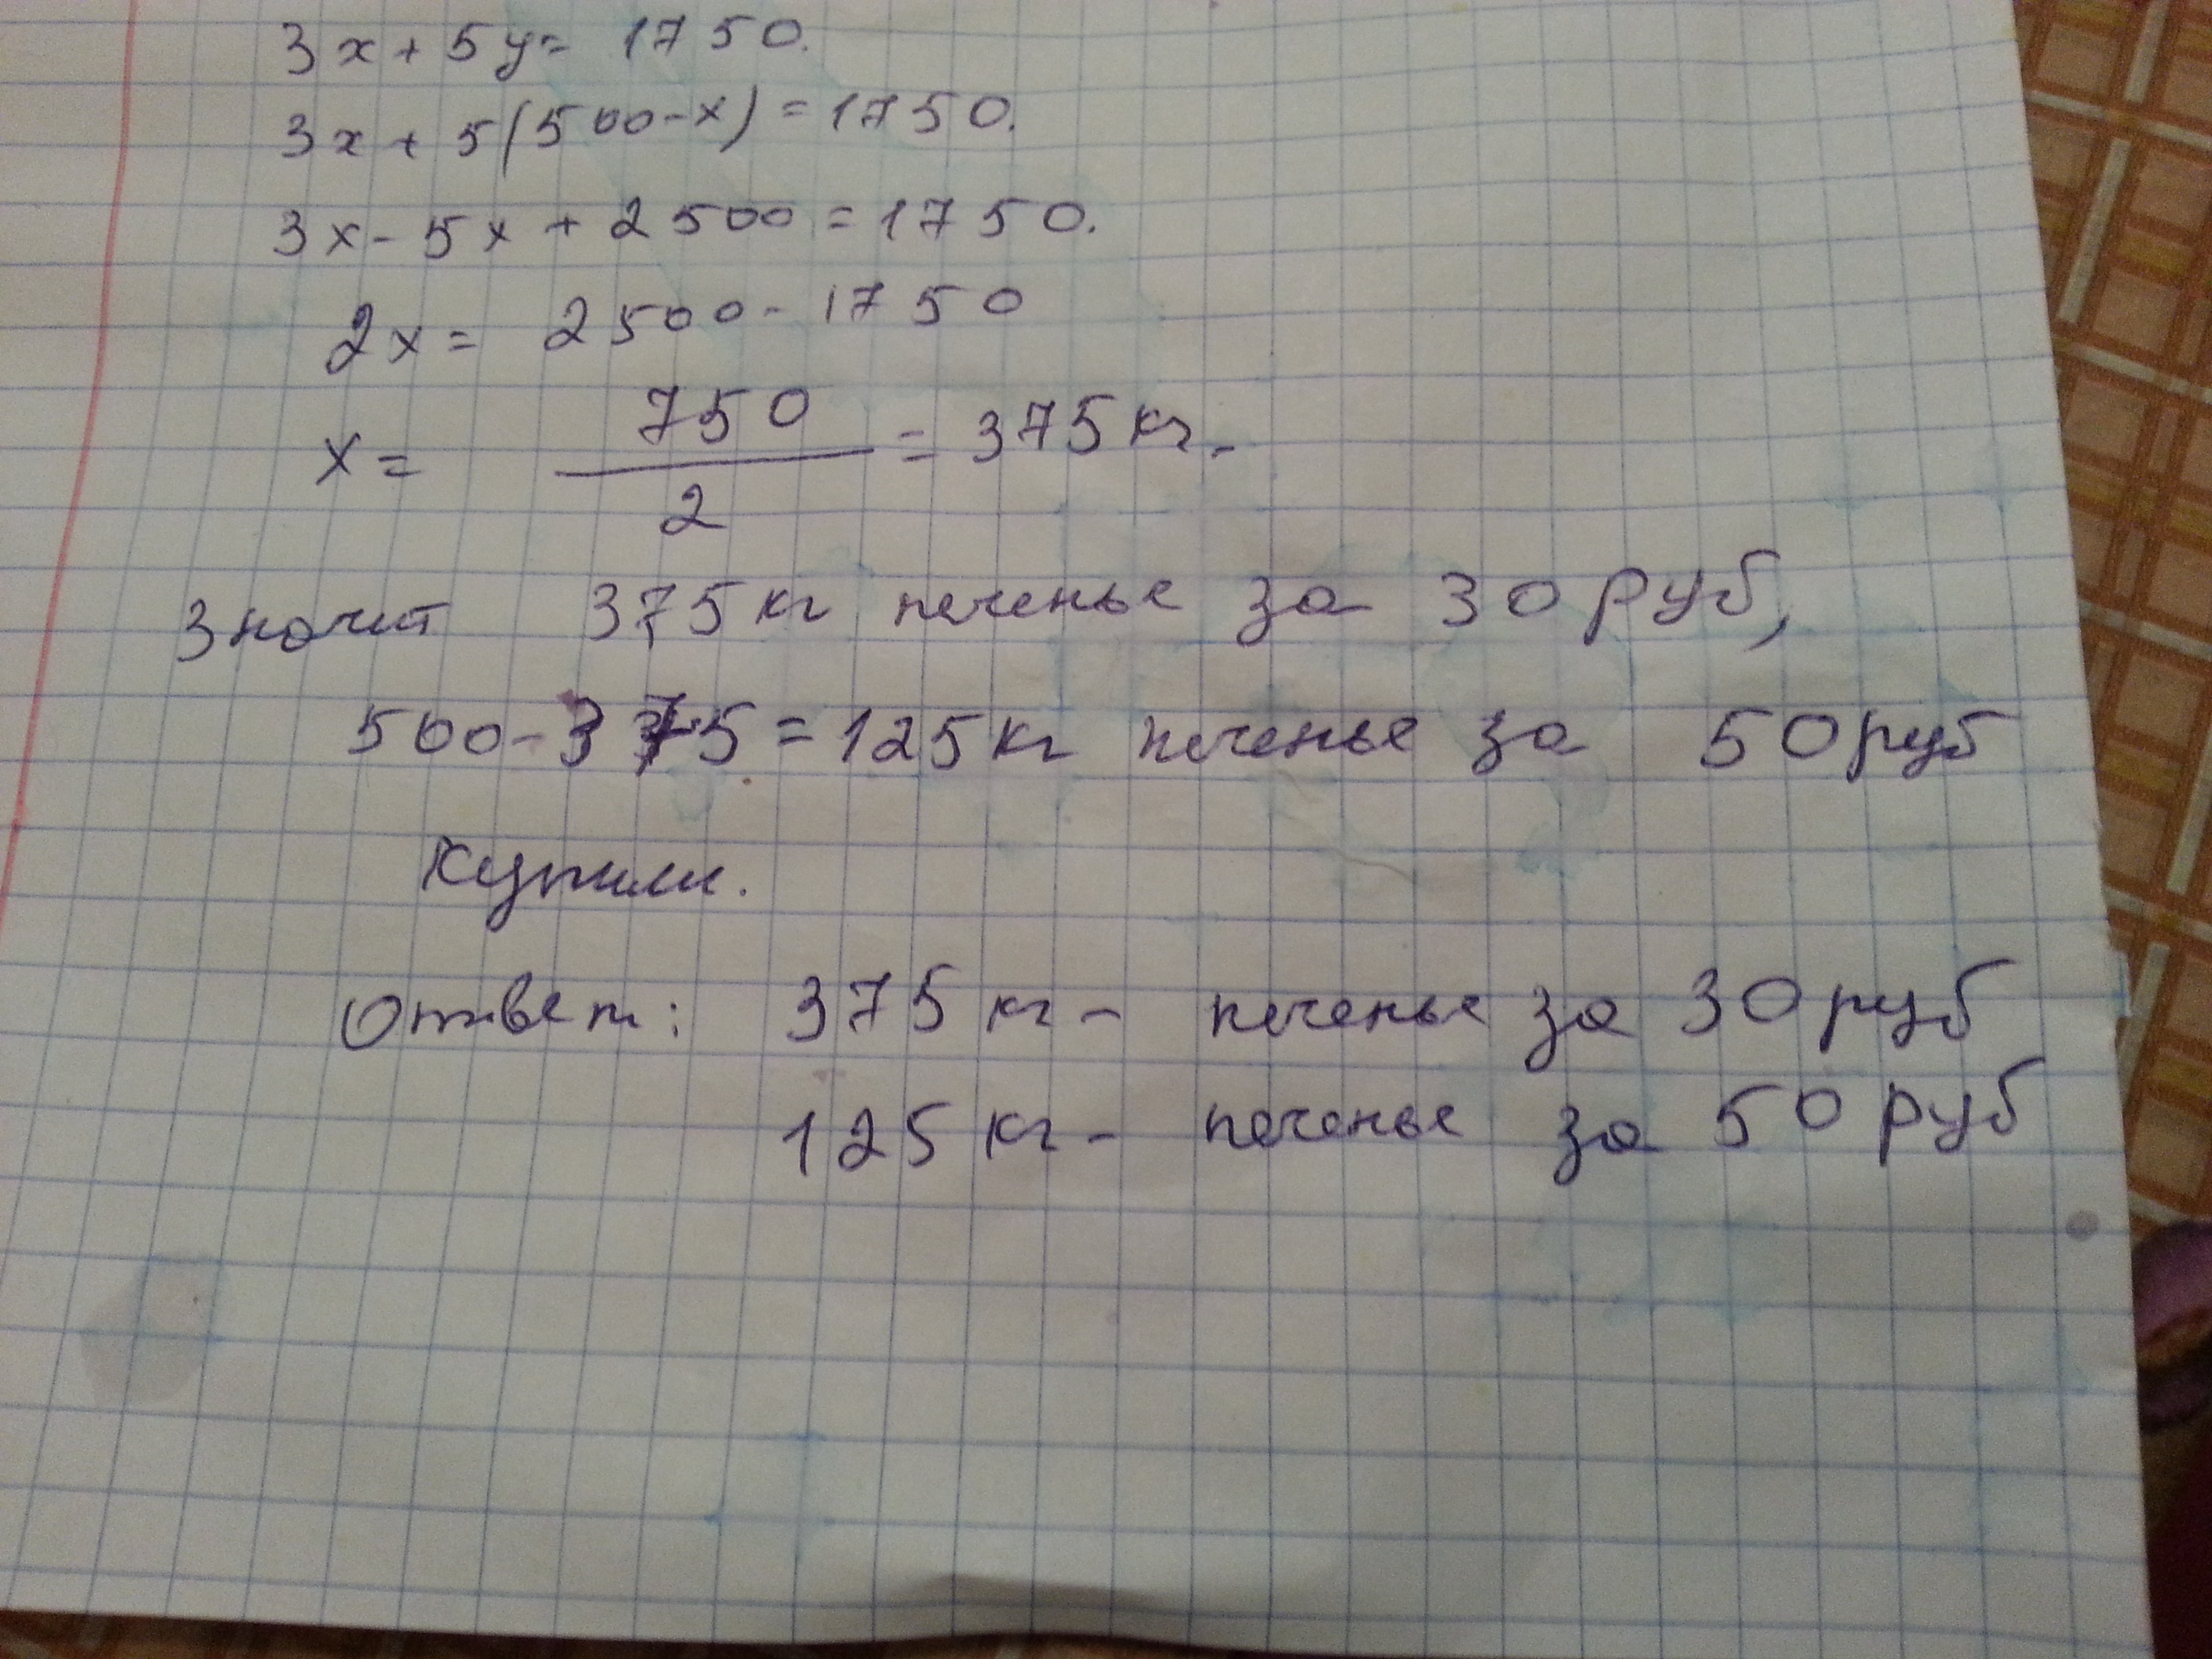 3x + 5y = 1750.
3x + 5(500-x) = 1750.
3x - 5x + 2500 = 1750.
2x = 2500 - 1750
x = 750/2 = 375 кг.
Значит 375 кг печенье за 30 руб,
500 - 375 = 125 кг печенье за 50 руб
купили.
Ответ: 375 кг - печенье за 30 руб
125 кг - печенье за 50 руб